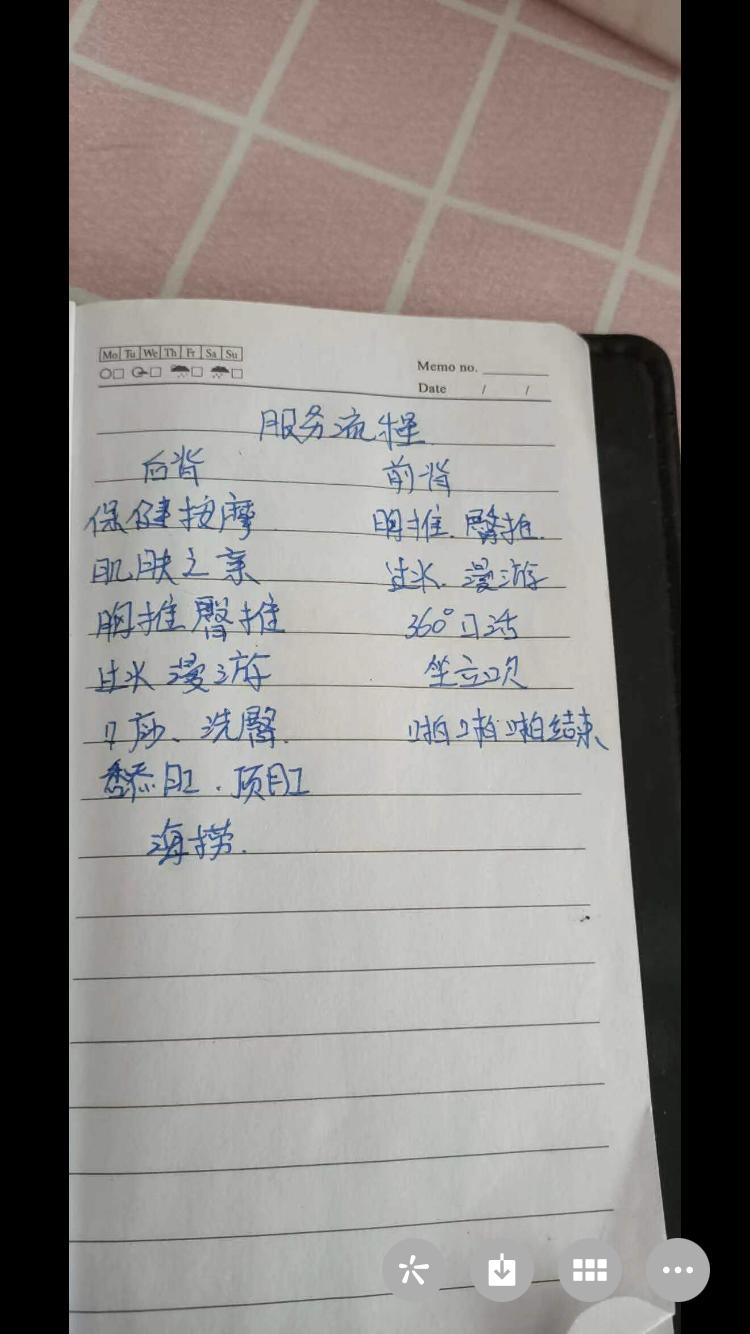 Mo Tu We Th Fr Sa Su
Memo no.
Date / /
服务流程
后背 前背
保健按摩 胸推.臀推.
肌肤之亲 过水.漫游
胸推臀推 360°口活
过水漫游 坐立吹
洗臀. 啪啪啪结束、
舔肛.顶肛
海捞.